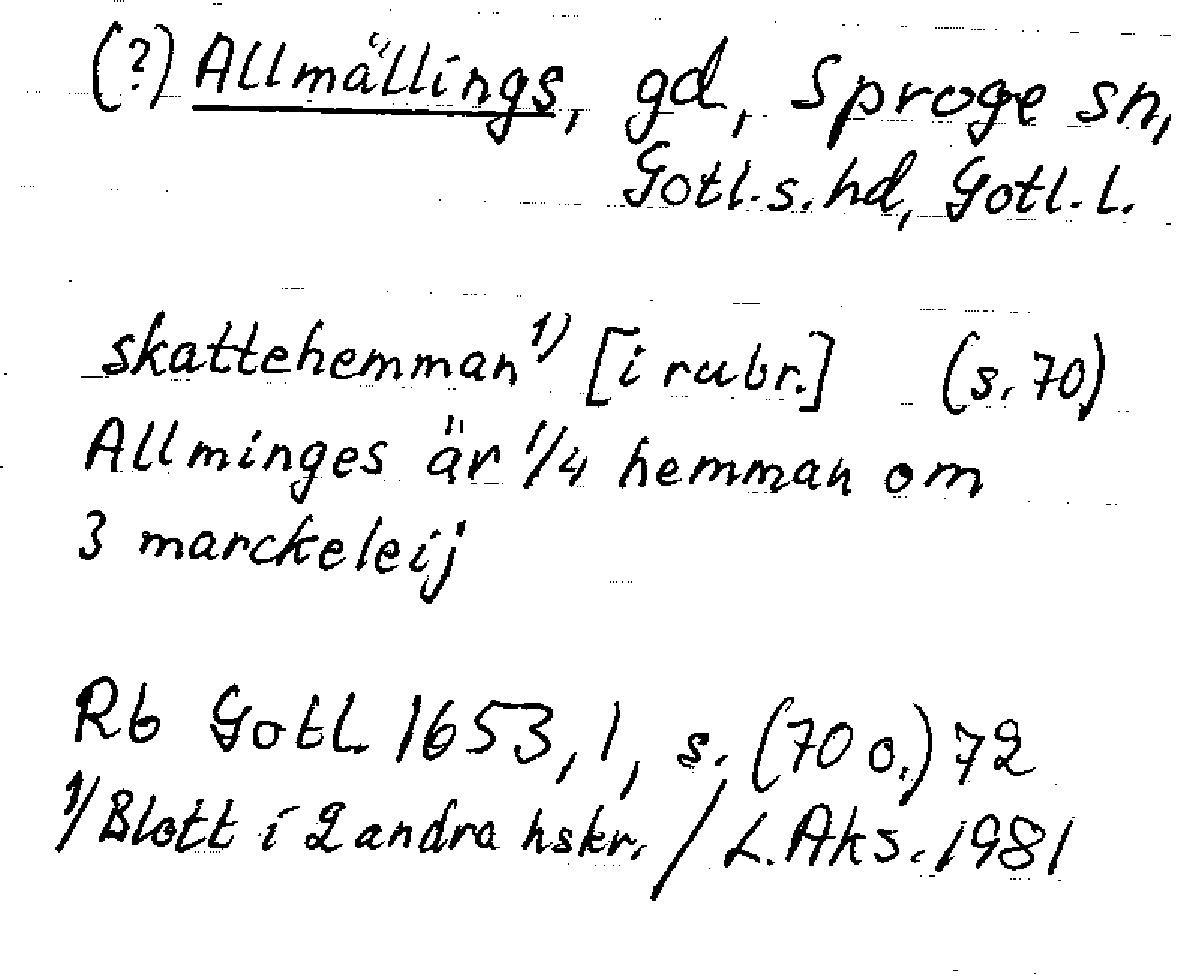 (?) Allmällings, gd, Sproge sn,
Gotl. s. hd, Gotl. l.
skattehemman 1) [i rubr.] (s. 70)
Allminges är 1/4 hemman om
3 marckeleij
Rb Gotl 1653, 1, s. (70 o.) 72
1) Blott i 2 andra hskr. / L. Aks. 1981